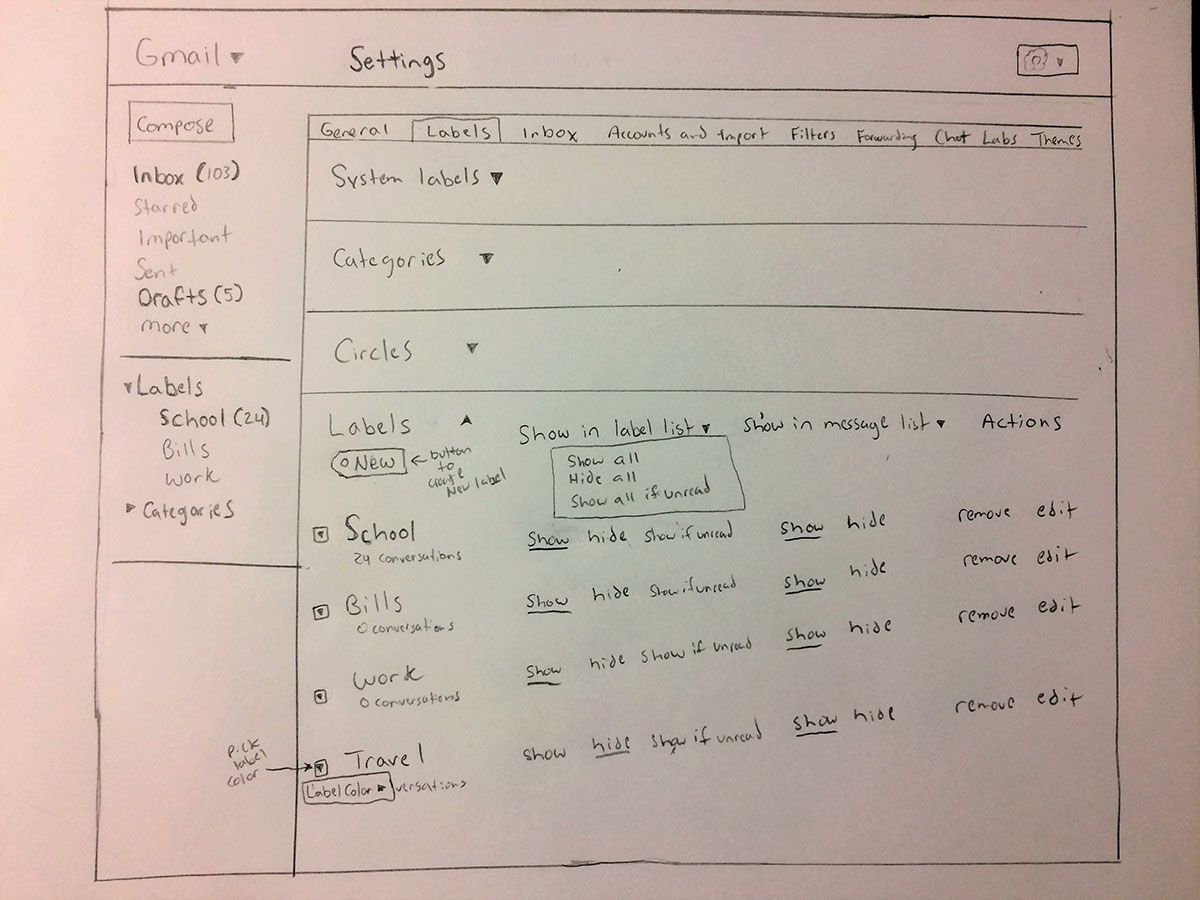 Gmail Settings
Compose
Inbox (103)
Starred
Important
Sent
Drafts (5)
more
Labels
School (24)
Bills
Work
Categories
General Labels Inbox Accounts and Import Filters Forwarding Chat Labs Themes
System labels
Categories
Circles
Labels Show in label list Show in message list Actions
New
button
to
create
New label
Show all
Hide all
Show all if unread
School show hide show if unread show hide remove edit
24 conversations
Bills show hide show if unread show hide remove edit
0 conversations
Work show hide show if unread show hide remove edit
0 conversations
Travel show hide show if unread show hide remove edit
Label Color versations
pick
label
color